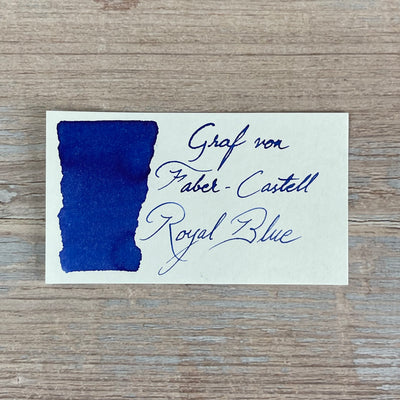 Graf von
Faber-Castell
Royal Blue